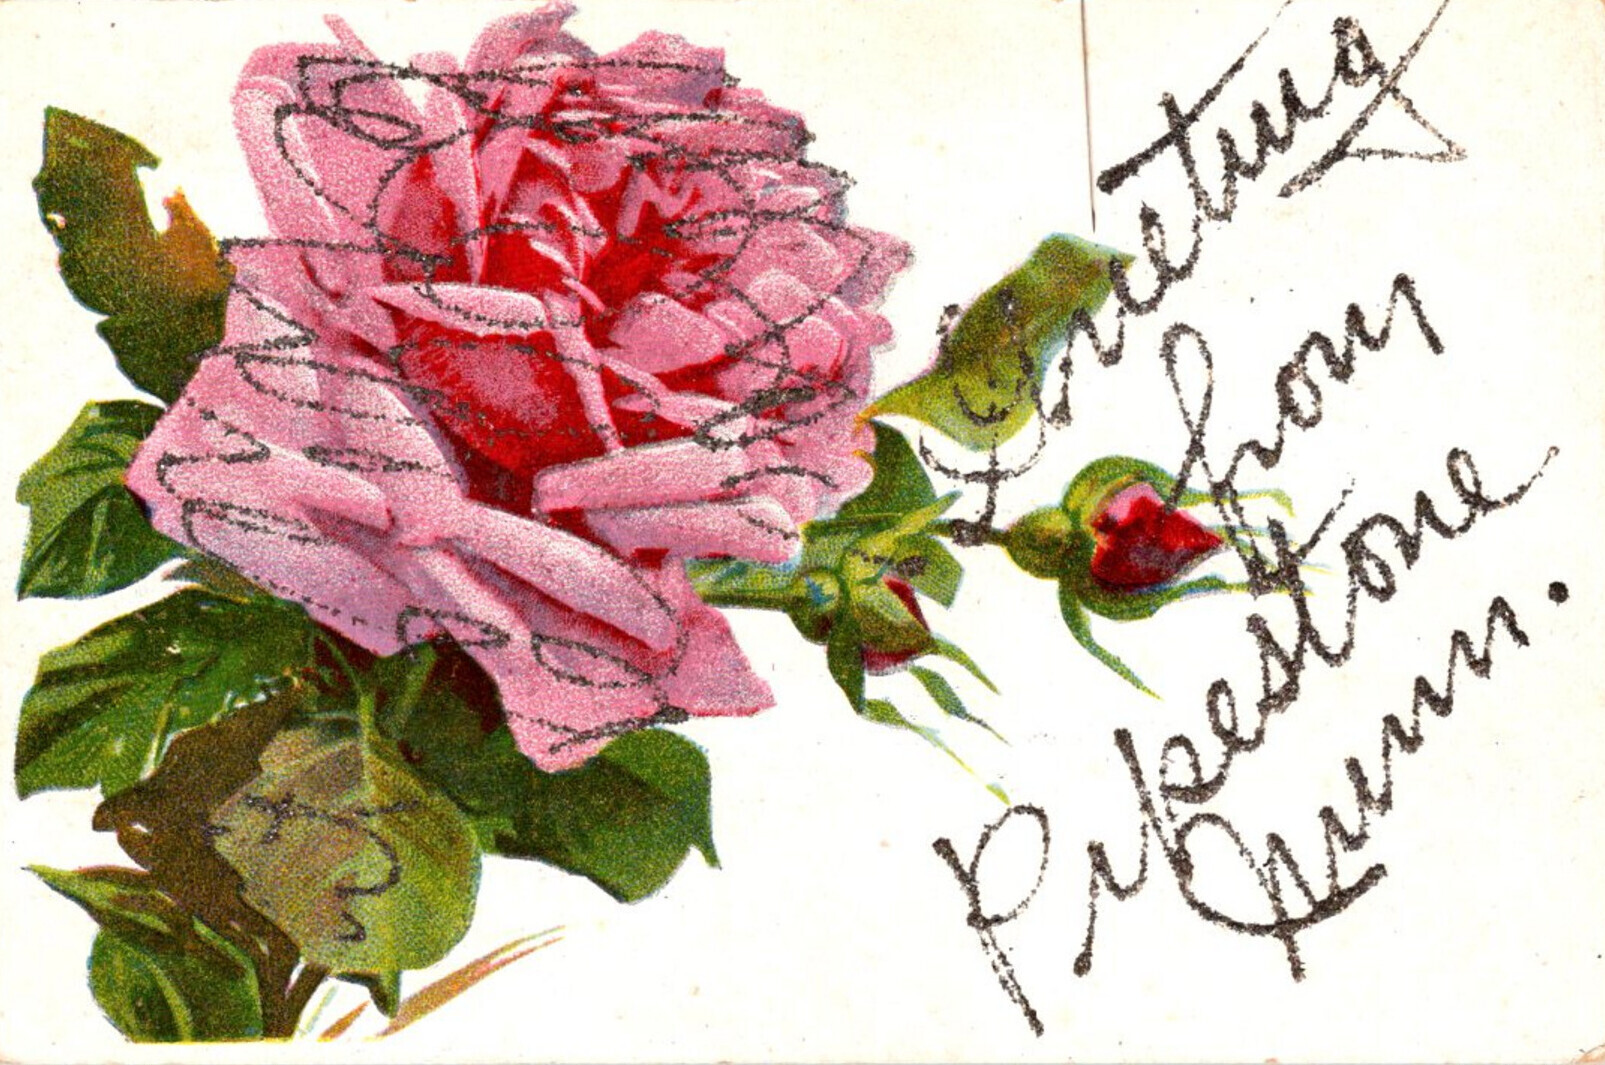 Greetings
from
Pipestone
Minn.